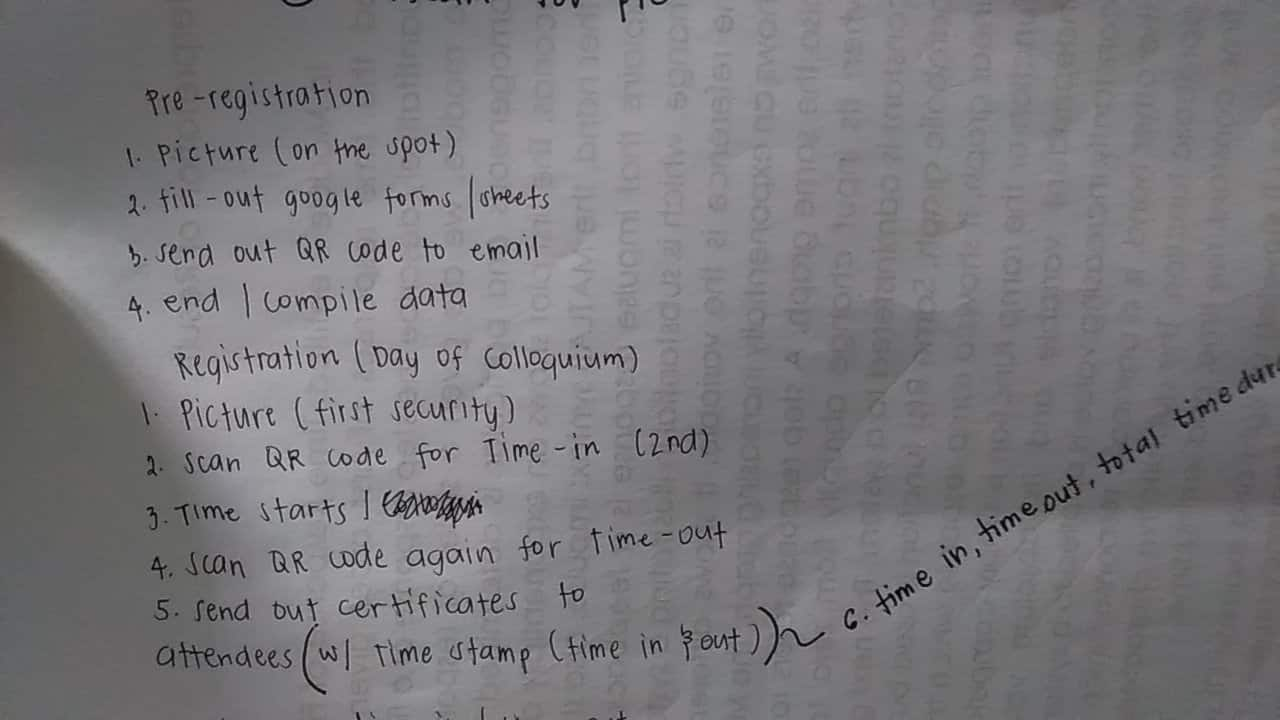 for
Pre-registration
1. Picture (on the spot)
2. fill-out google forms / sheets
3. send out QR code to email
4. end / compile data
Registration (Day of Colloquium)
1. Picture (first security)
2. scan QR code for Time-in (2nd)
3. Time starts /
4. scan QR code again for time-out
5. send out certificates to
attendees (w/ Time stamp (time in & out))
6. time in, time out, total time